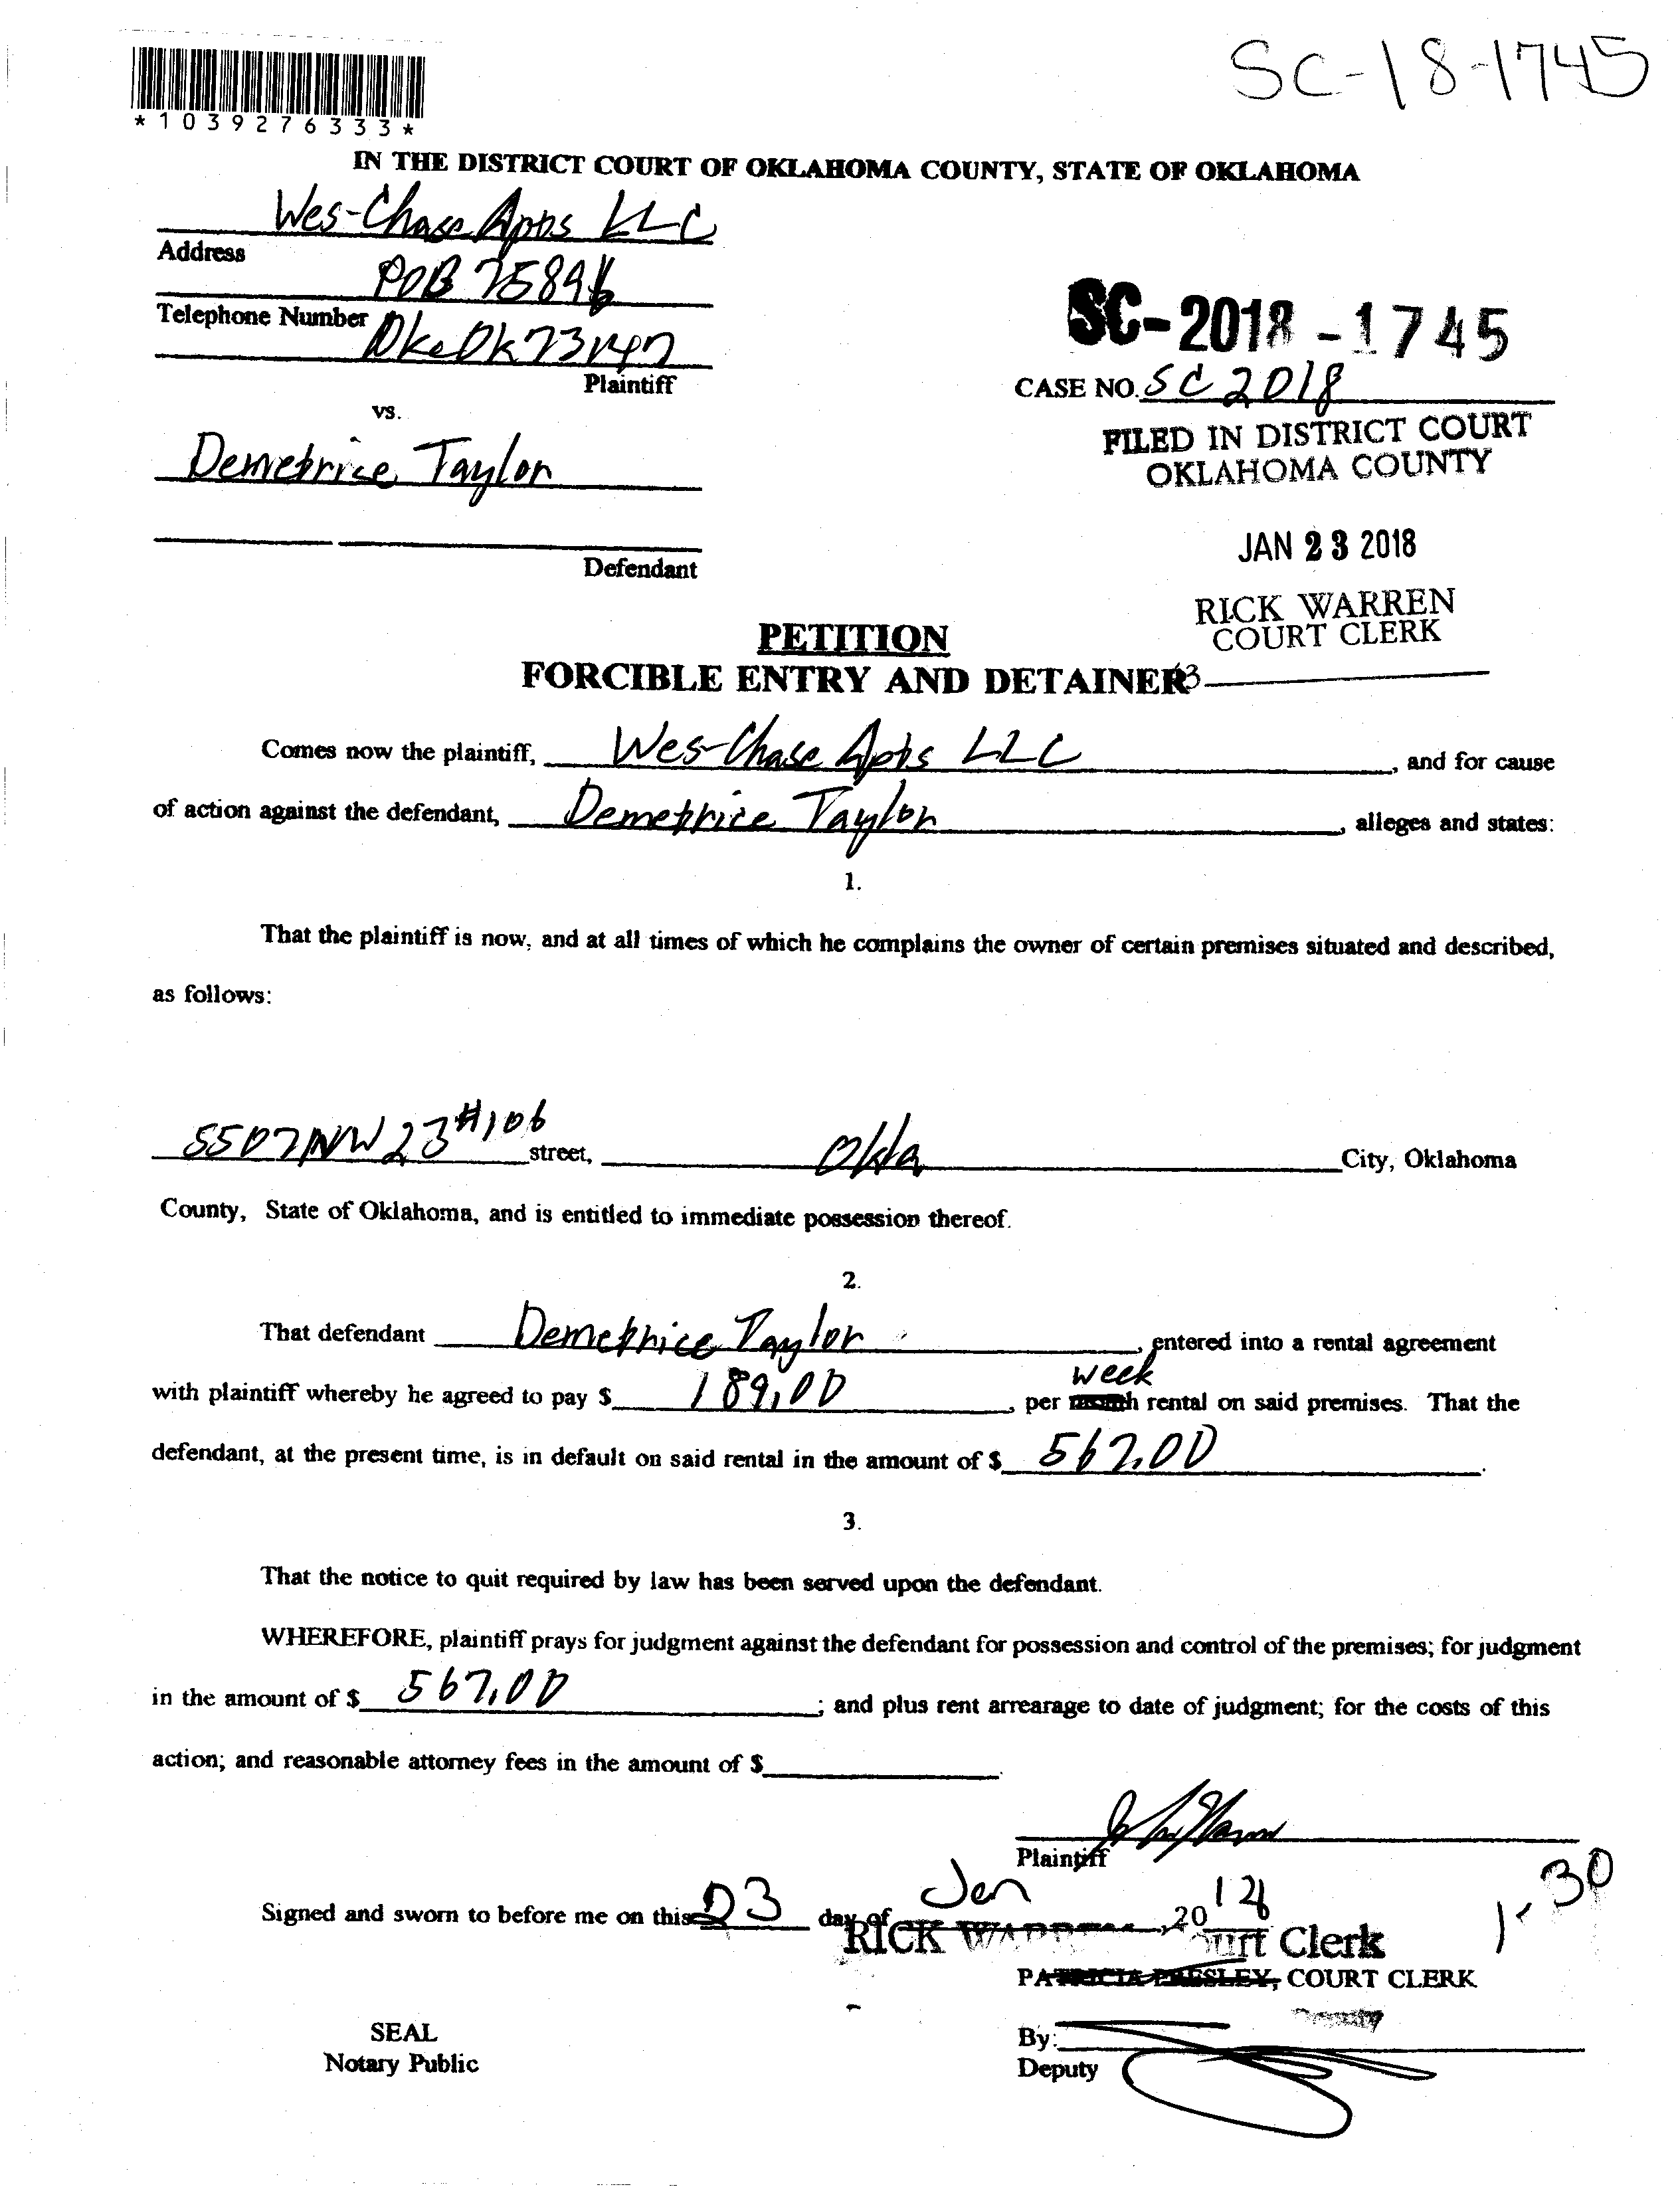 SC-18-1745
*1039276333*
IN THE DISTRICT COURT OF OKLAHOMA COUNTY, STATE OF OKLAHOMA
Wes-Chase Apts LLC
Address
POB 75896
Telephone Number
Okc Ok 73147
Plaintiff
vs.
Demetrice Taylor
Defendant
SC-2018-1745
CASE NO. SC 2018
FILED IN DISTRICT COURT
OKLAHOMA COUNTY
JAN 23 2018
RICK WARREN
COURT CLERK
PETITION
FORCIBLE ENTRY AND DETAINER
Comes now the plaintiff, Wes-Chase Apts LLC, and for cause
of action against the defendant, Demetrice Taylor, alleges and states:
1.
That the plaintiff is now, and at all times of which he complains the owner of certain premises situated and described,
as follows:
5507 NW 23 #106 street, Okla City, Oklahoma
County, State of Oklahoma, and is entitled to immediate possession thereof.
2.
That defendant Demetrice Taylor, entered into a rental agreement
week
with plaintiff whereby he agreed to pay $ 189.00, per month rental on said premises. That the
defendant, at the present time, is in default on said rental in the amount of $ 567.00.
3.
That the notice to quit required by law has been served upon the defendant.
WHEREFORE, plaintiff prays for judgment against the defendant for possession and control of the premises; for judgment
in the amount of $ 567.00; and plus rent arrearage to date of judgment; for the costs of this
action; and reasonable attorney fees in the amount of $ .
Plaintiff
Signed and sworn to before me on this 23 day of Jan, 2018
1-30
RICK WARREN Court Clerk
PATRICIA PRESLEY, COURT CLERK
SEAL
Notary Public
By:
Deputy